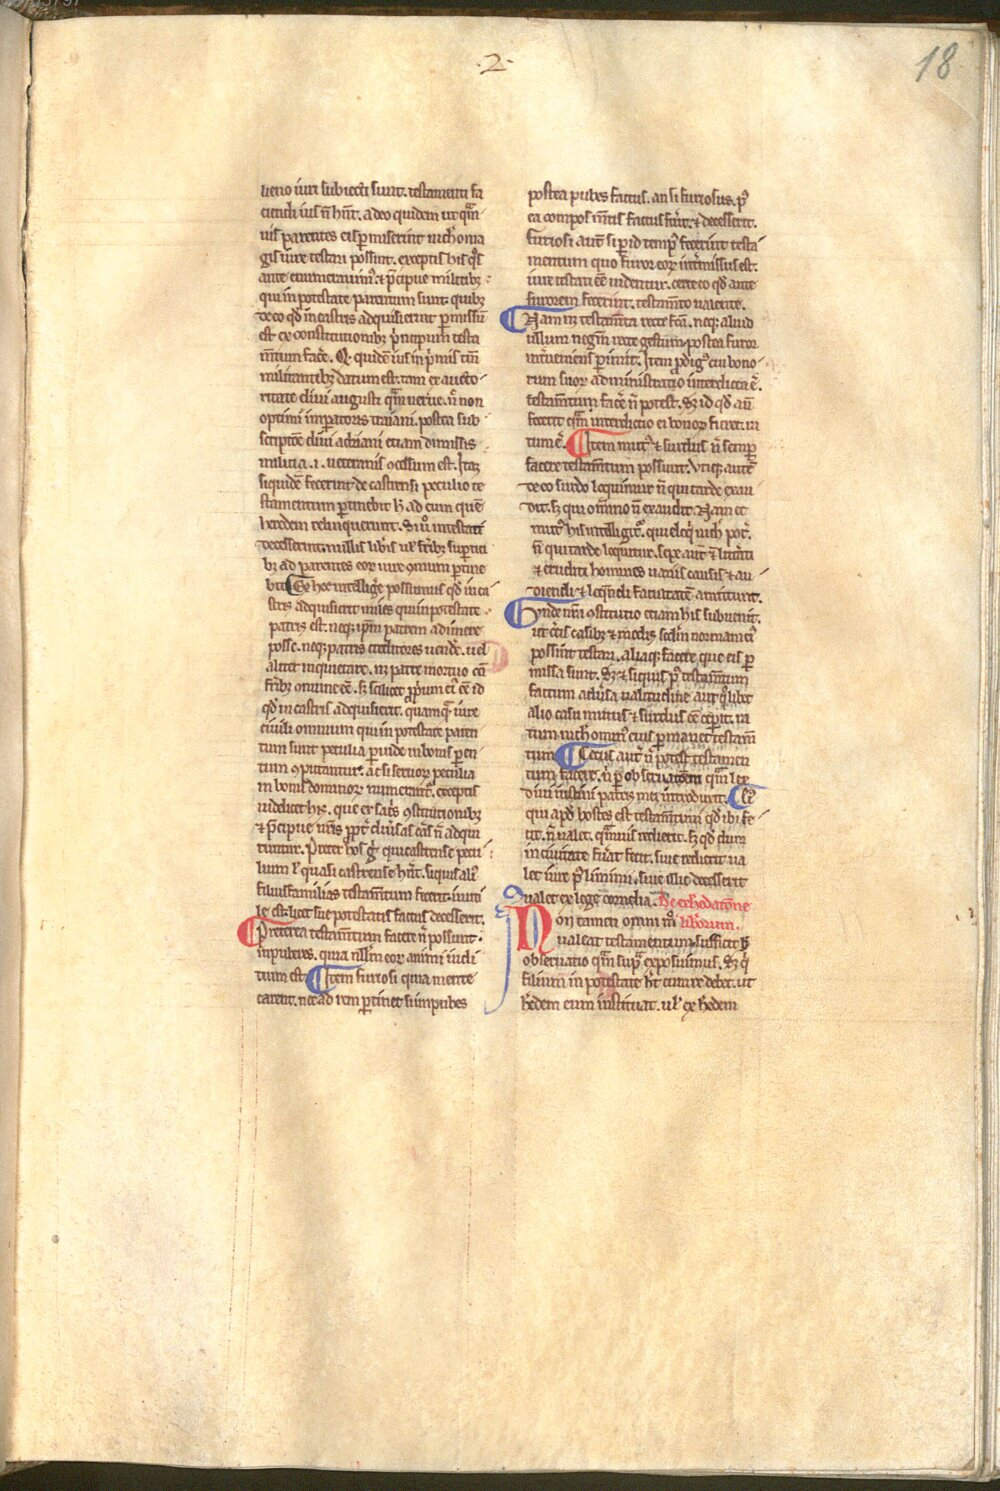 .2.
18
lieno iuri subiecti sunt. testamenti fa
ciendi ius n̄ hn̄t. adeo quidem ut q̄m
uis parentes eis ꝑmiserint nichoma
gis iure testari possint. exceptis his q̄s
ante enumerauimꝰ. ⁊ p̄cipue militibꝫ
qui in potestate parentum sunt. quibꝫ
de eo qd̓ in castris adquisierint ꝑmissū
est ex constitutionibꝫ p̓ncipum testa
m̄tum face̓. Qd̓ quidē ius in p̓mis tm̄
militantibꝫ datum est. tam ex aucto
ritate diui augusti q̄m nerue. n̄ non
optimi imꝑatoris traiani. postea sub
scriptōe diui adriani etiam dimissis
militia .i. ueteranis ꝯcessum est. Itaꝫ
siquidē fecerint de castrensi peculio te
stamentum ꝑtinebit h̓ ad eum quē
heredem relinquerunt. Si u̓o intestati
decesserint nullis lib̓is ul̓ fr̄ibꝫ suꝑsti
bꝫ ad parentes eor iure ꝯmuni ꝑtine
bit. Ex hoc intellige̓ possumus qd̓ in ca
stris adquisierit miles qui in potestate
patris est. neqꝫ ip̄m patrem adimere
posse. neqꝫ patris creditores uende̓. uel
aliter inquietare. nꝫ patre mortuo cū
fr̄ibꝫ ꝯmune eē. sꝫ scilicet ꝓprium eiꝰ eē id
qd̓ in castris adquisierit. quamqꝫ iure
ciuili omnium qui in potestate paren
tum sunt peculia ꝑinde in bonis paren
tum ꝯputantur. ac si seruor peculia
in bonis dominor numerant̓. exceptis
uidelicet his. que ex sac̓s ꝯstitutionibꝫ
⁊ p̄cipue nr̄is ꝓpt̓ diu̓sas cās n̄ adqui
runtur. Preter hos g̓ qui castrense pecu
lium l̓ quasi castrense hn̄t. siquis aliꝰ
filiusfamilias testam̄tum fecerit. inuti
le est. licet sue potestatis factus decesserit.
Preterea testam̄tum facere n̄ possunt.
inpuberes. quia nullm̄ eor animi iudi
tium est. Item furiosi quia mente
carent. nec ad rem ꝑtinet si impubes
postea pubes factus. an si furiosus. pꝰ
ea compos m̄tis factus fu̓it. ⁊ decesserit.
furiosi aut̄ si ꝑ id tempꝰ fecerint testa
mentum quo furor eor int̓missus est.
iure testati eē uidentur. certe eo qd̓ ante
furorem fecerint. testam̄to ualente.
Nam nꝫ testam̄ta recte fcā. neqꝫ aliud
ullum negm̄ recte gestum postea furor
int̓ueniens ꝑimit. Item ꝓdigꝰ cui bono
rum suor administratio interdicta ē.
testam̄tum face̓ n̄ potest. sꝫ id qd̓ an̄
fecerit q̄m interdictio ei bonor fieret. ra
tum ē. Item mutꝰ ⁊ surdus n̄ semꝑ
facere testam̄tum possunt. Vtiqꝫ autē
de eo surdo loquimur n̄ qui tarde exau
dit. sꝫ qui om̄ino n̄ exaudit. Nam et
mutꝰ his intelligit̓. qui eloqi nich̓ pot̓.
n̄ qui tarde loquitur. sepe aut̄ ⁊ litt̓ati
⁊ eruditi homines uariis causis ⁊ au
diendi ⁊ loquendi facultatē amittunt.
Unde nr̄a ꝯstitutio etiam his subuenit.
ut c̓tis casibꝫ ⁊ modis scdm̄ normam eiꝰ
possint testari. aliaqꝫ facere que eis ꝑ
missa sunt. Sꝫ ⁊ siquis pꝰ testam̄tum
factum adu̓sa ualitudine aut quolibet
alio casu mutus ⁊ surdus eē ceperit. ra
tum nich̓omiꝰ eius ꝑmanet testam̄
tum. Cecus aut̄ n̄ potest testamen
tum facere. n̄ ꝑ obseruatōem q̄m lex
diui iustini patris mei introduxit. Eiꝰ
qui apd̓ hostes est testam̄tum qd̓ ibi fe
cit. n̄ ualet. q̄muis redierit. sꝫ qd̓ dum
in ciuitate fu̓at fecit. siue redierit ua
let iure pꝰliminii. siue illic decesserit
ualet ex lege cornelia. De exhedatōne
Non tamen omnī m̄ liborum.
ualeat testamentum. sufficit h̓
obseruatio q̄m sup̄ exposuimus. sꝫ q̓
filium in potestate h̓t curare debet. ut
h̓edem eum instituat. ul̓ ex h̓edem